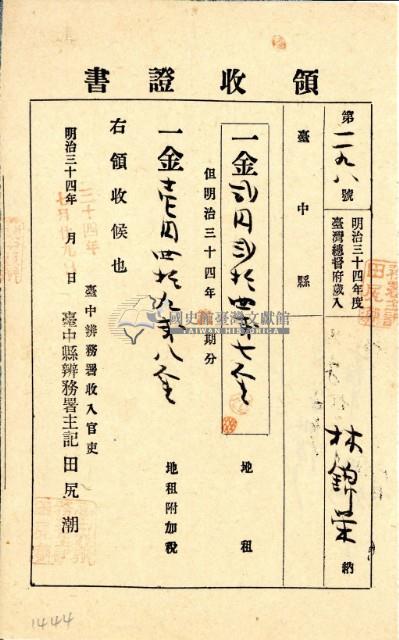 領收證書
第二九八號
明治三十四年度
臺灣總督府歲入
林錦榮 納
臺中縣
一金貳円貳拾四錢七厘 地租
但明治三十四年 期分
一金壱円四拾九錢八厘 地租附加稅
右領收候也
明治三十四年 月 日
三十四年
臺中辨務署收入官吏
臺中縣辨務署主記 田尻潮
國史館臺灣文獻館
TAIWAN HISTORICA
1444